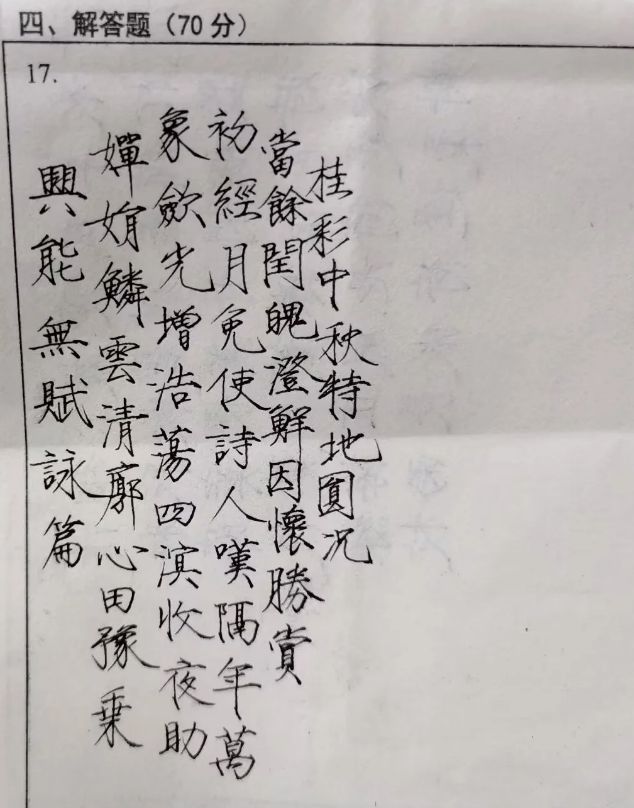 四、解答题（70分）
17.
桂彩中秋特地圓况
當餘閏魄澄鮮因懷勝賞
初經月免使詩人嘆隔年萬
象歛光增浩蕩四溟收夜助
嬋娟鱗雲清廓心田豫乗
興能無賦詠篇